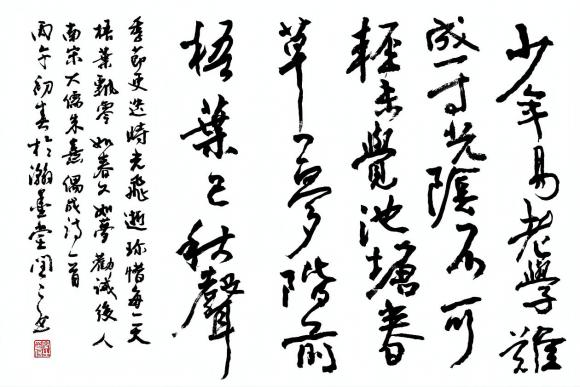 少年易老學難
成一寸光陰不可
輕未覺池塘春
草夢階前
梧葉已秋聲
季節更迭時光飛逝珍惜每一天
梧葉飄零如春又如夢勸誡後人
南宋大儒朱熹偶成詩一首
丙午初春於瀚墨堂